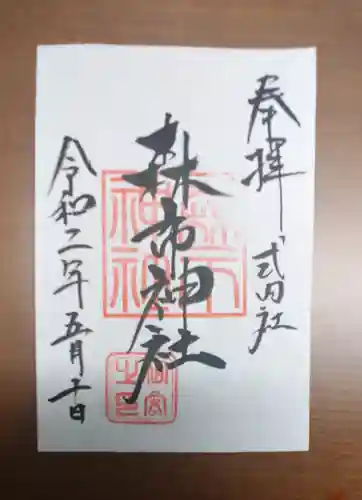 奉拝
式内社
森市神社
令和二年五月十日